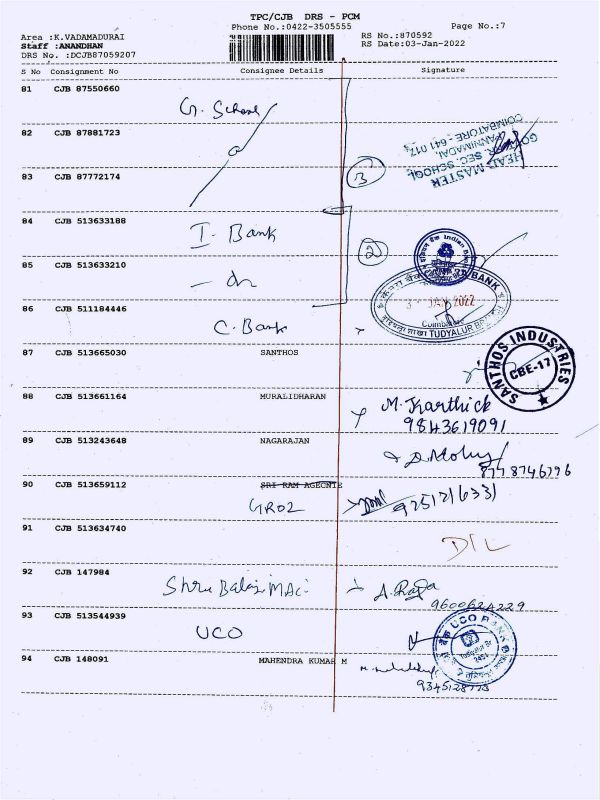 TPC/CJB DRS - PCM
Phone No.:0422-3505555
Page No.:7
Area :K.VADAMADURAI
Staff :ANANDHAN
DRS No. :DCJB87059207
RS No.:870592
RS Date:03-Jan-2022
S No Consignment No Consignee Details Signature
81 CJB 87550660
G. School
82 CJB 87881723
HEAD MASTER
SEC. SCHOOL
PANNIMADAI,
COIMBATORE - 641 017
83 CJB 87772174
3
84 CJB 513633188
I. Bank
2
Indian Bank
85 CJB 513633210
- do
86 CJB 511184446
C. Bank
BANK
3 - JAN 2022
TUDYALUR
87 CJB 513665030 SANTHOS
SANTHOS INDUSTRIES
CBE-17
88 CJB 513661164 MURALIDHARAN
M. Karthick
9843619091
89 CJB 513243648 NAGARAJAN
90 CJB 513659112 SRI RAM AGEONIE
9251216331
91 CJB 513634740
DIL
92 CJB 147984
Shree Balaji MAC
A. Raja
93 CJB 513544939
UCO
UCO BANK
94 CJB 148091 MAHENDRA KUMAR M